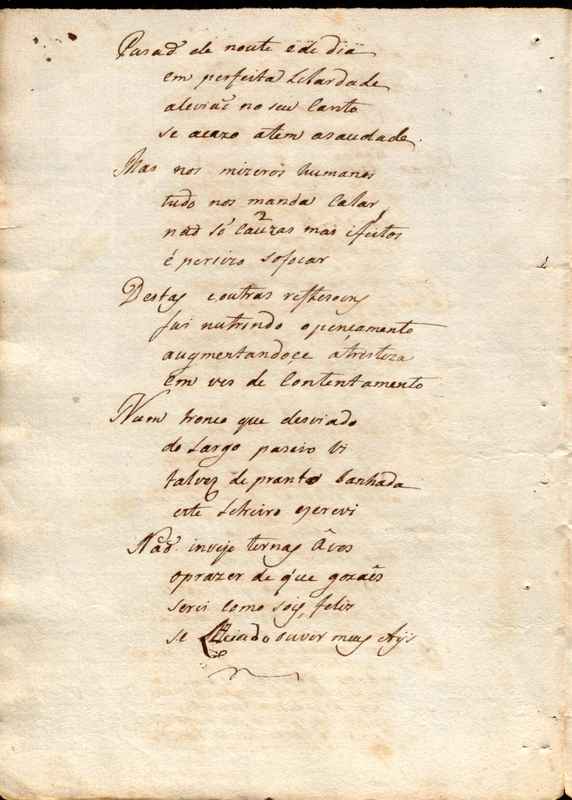 Pasaõ de noute e de dia
em perfeita Libardade
aleviaõ no seu Canto
se acazo atem asaudade.
Mas nos mizeros humanos
tudo nos manda Calar
naõ só Cauzas mas ifeitos
é percizo sofocar
Destas eoutras reflexoens
fui nutrindo opençamento
augmentandoce átristeza
em ves de Contentamento
Num tronco que desviado
do Largo paseio vi
talvez de pranto banhada
este Letreiro escrevi
Naõ invejo ternas Aves
oprazer de que gozaes
serei como sois feliz
se ouver meus Ays